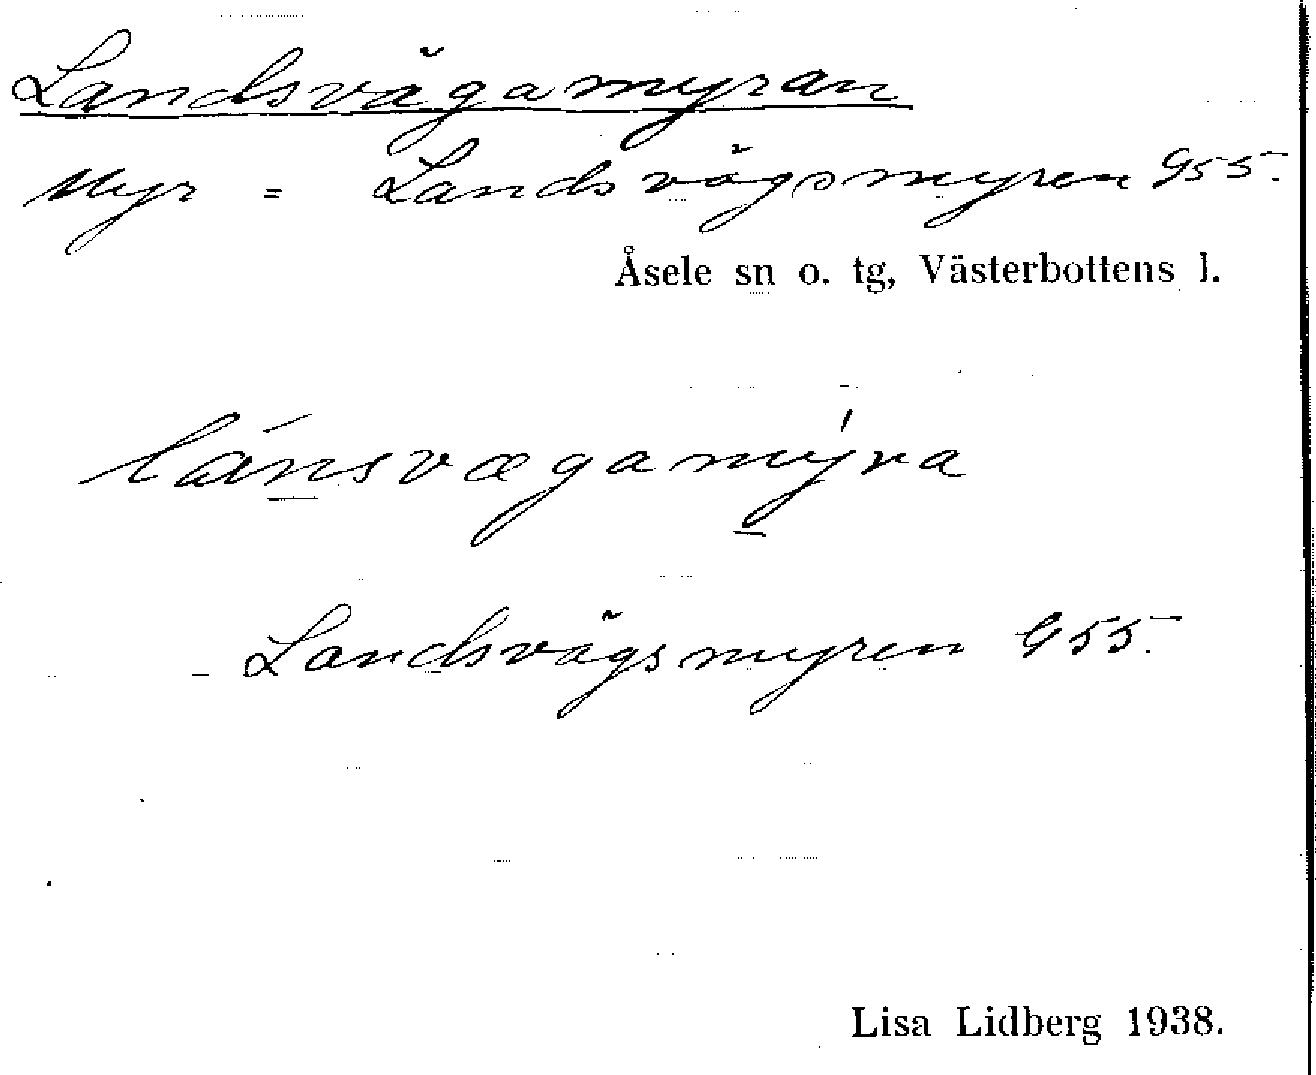 Landsvägamyran
Myr = Landsvägsmyren G55.
Åsele sn o. tg, Västerbottens l.
lánsvægamýra
Landsvägsmyren G55.
Lisa Lidberg 1938.